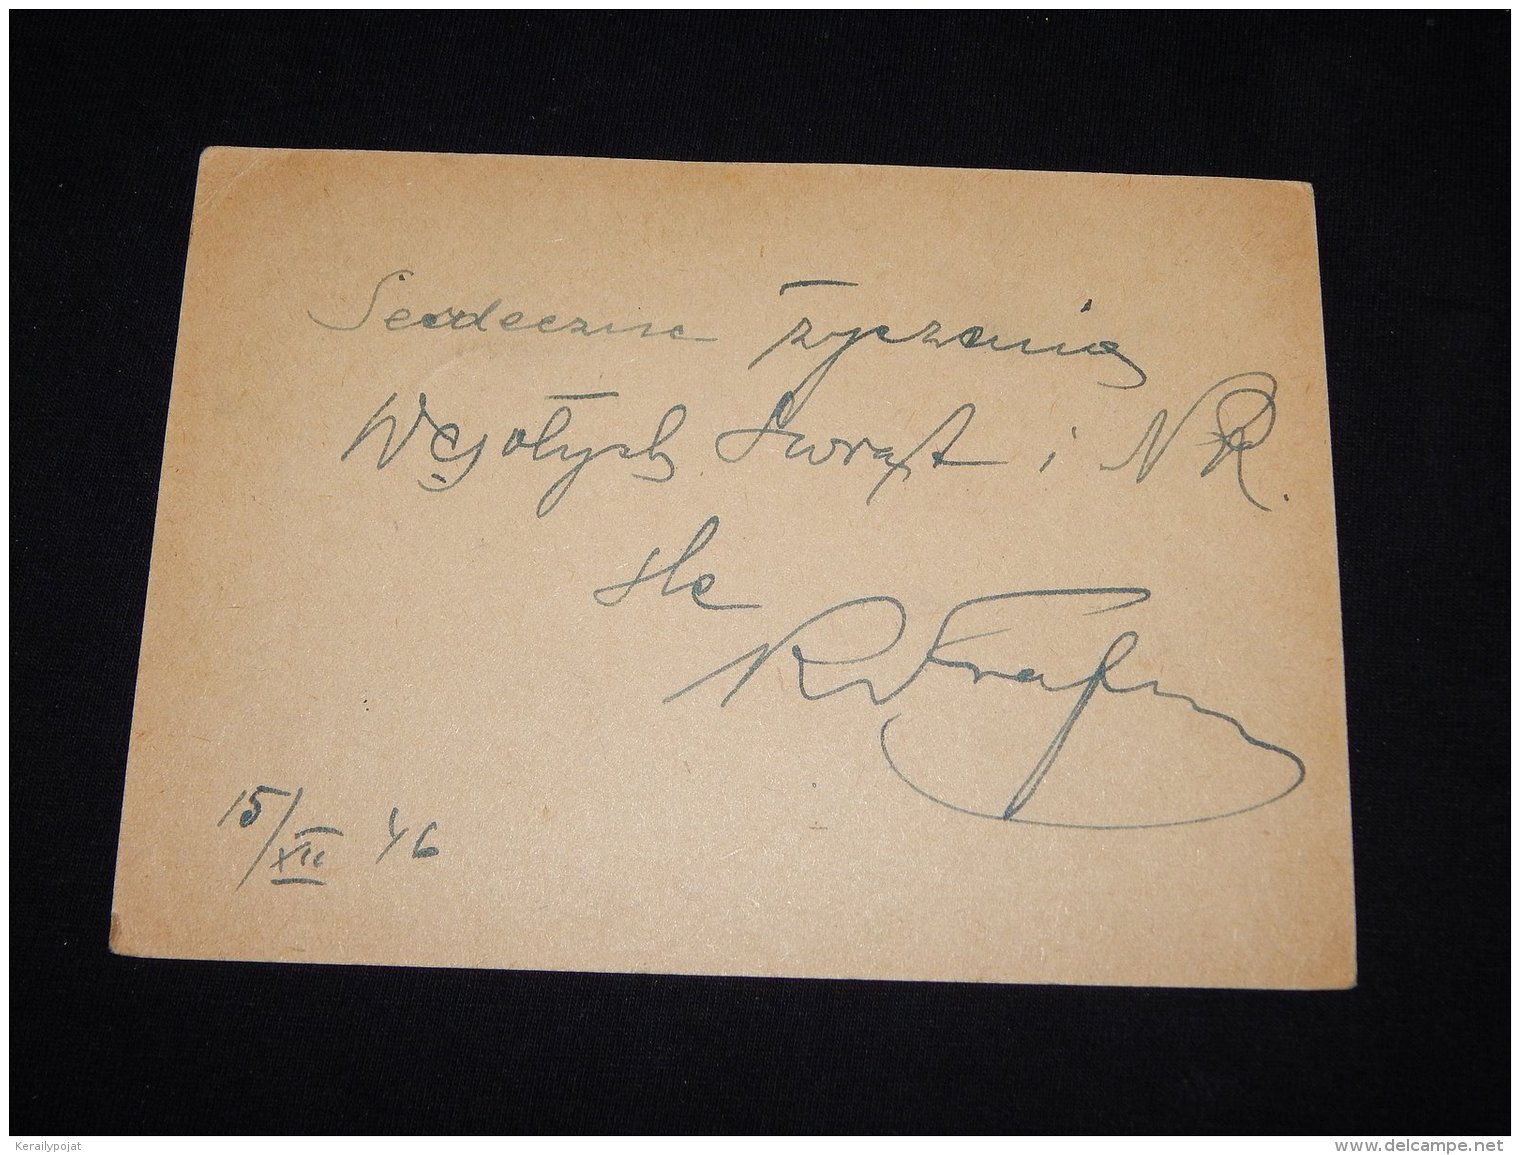 Serdeczne życzenia
Wesołych Świąt i NR.
śle
15/XII 46
Kerailypojat
www.delcampe.net